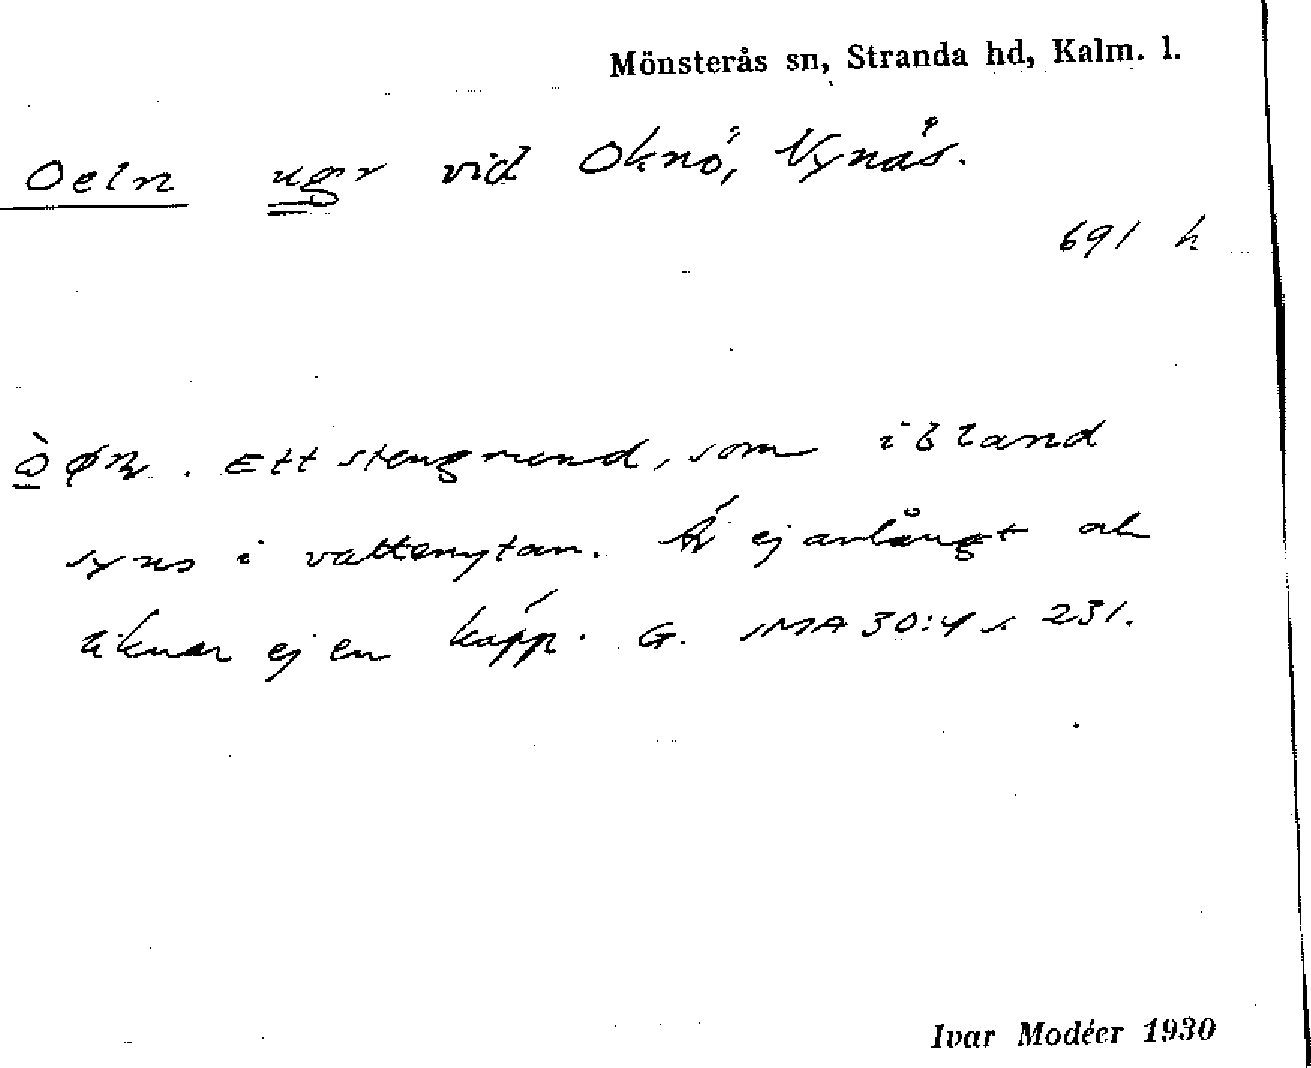 Mönsterås sn, Stranda hd, Kalm. l.
Oeln ugr vid Oknö, Nynäs.
691 h
Ett stengrund, som ibland
syns i vattenytan. Är ej avlångt och
liknar ej en käpp. G. SMA 30:4 s. 231.
Ivar Modéer 1930